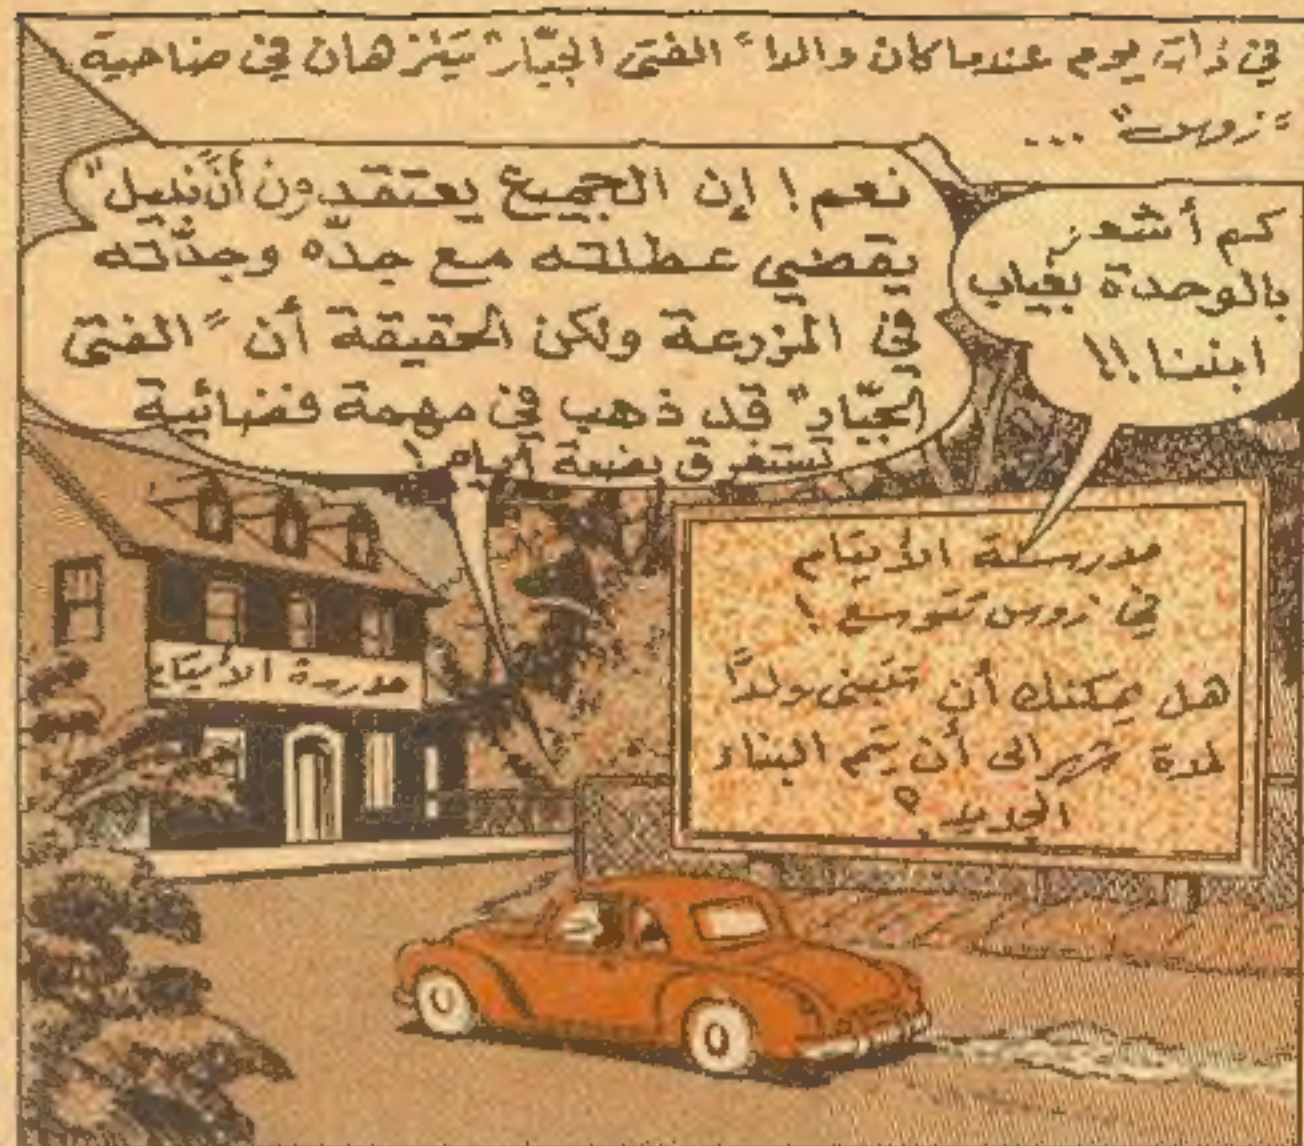 في ذات يوم عندما كان والدا "الفتى الجبّار" يتنزهان في ضاحية
"زوس" ...
كم أشعر
بالوحدة بغياب
ابننا !!
نعم ! إن الجميع يعتقدون أنّ نبيل"
يقضي عطلته مع جدّه وجدّته
في المزرعة ولكن الحقيقة أن "الفتى
الجبّار" قد ذهب في مهمة فضائية
تستغرق بضعة أيام !
مدرسة الأيتام
في زوس تتوسع !
هل يمكنك أن تتبنى ولدًا
لمدة شهر الى أن يتم البناء
الجديد ؟
مدرسة الأيتام